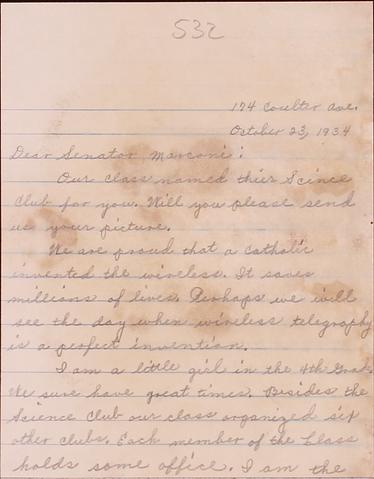 532
174 Coulter Ave.
October 23, 1934
Dear Senator Marconi:
Our class named thier Scince
Club for you. Will you please send
us your picture.
We are proud that a Catholic
invented the wireless. It saves
millions of lives. Perhaps we will
see the day when wireless telegraphy
is a perfect invention.
I am a little girl in the 4th Grad.
We sure have great times. Besides the
Science Club our class organized six
other clubs. Each member of the Class
holds some office. I am the